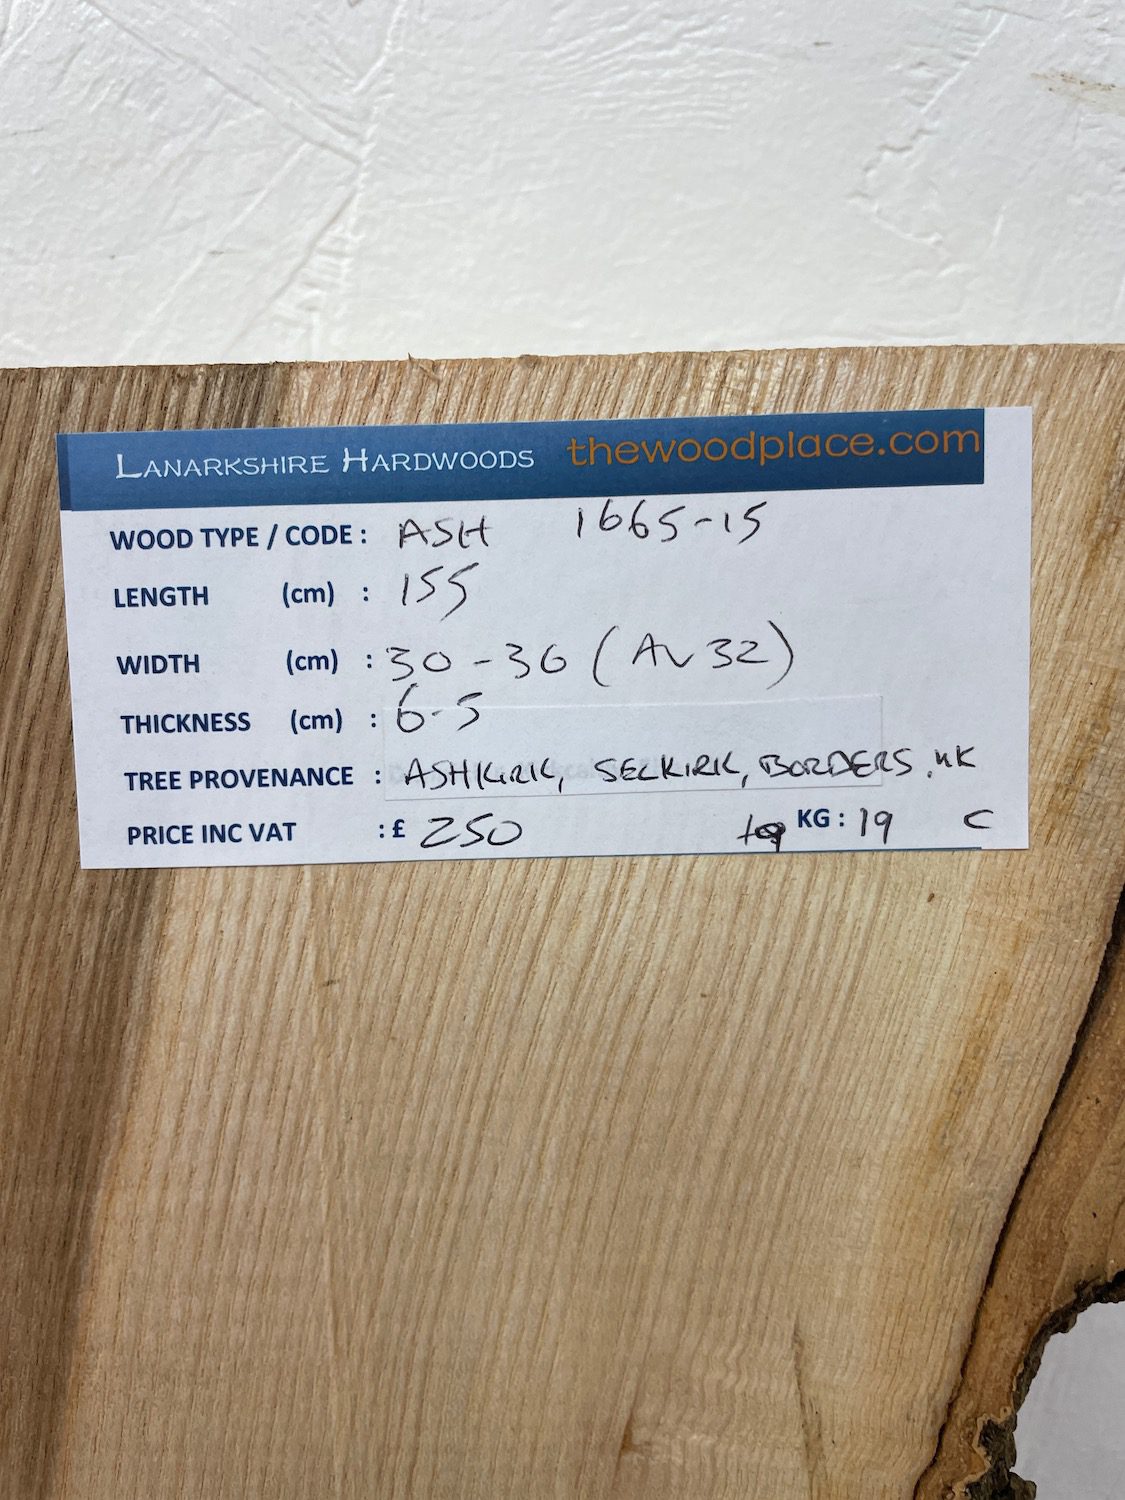 LANARKSHIRE HARDWOODS thewoodplace.com
WOOD TYPE / CODE : ASH 1665-15
LENGTH (cm) : 155
WIDTH (cm) : 30-36 (AV 32)
THICKNESS (cm) : 6.5
TREE PROVENANCE : ASHKIRK, SELKIRK, BORDERS, UK
PRICE INC VAT : £ 250 KG : 19 C